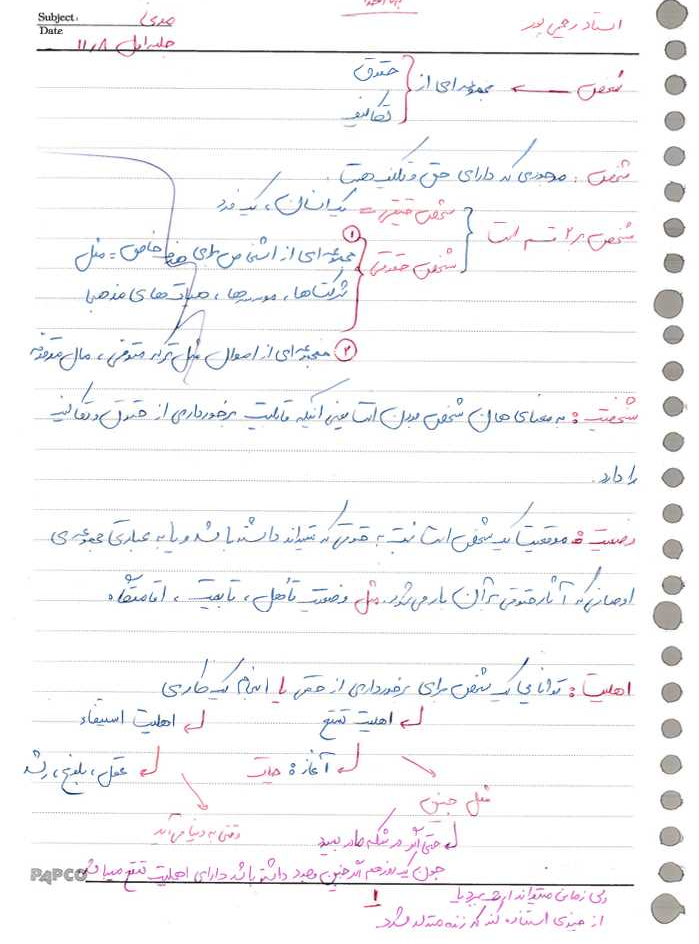 Subject:
Date
مدنی ۱
جلسه اول ۱۱/۸
استاد رحیمی پور
شخص ← مجموعه ای از { حقوق
تکالیف
شخص: موجودی که دارای حق و تکلیف هست.
شخص بر ۲ قسم است
شخص حقیقی = یک انسان، یک فرد
شخص حقوقی
① مجموعه ای از اشخاص برای هدف خاص = مثل
شرکت ها، موسسه ها، هیات های مذهبی
② مجموعه ای از اموال مثل ترکه متوفی، مال موقوفه
شخصیت: به معنای همان شخص بودن است یعنی اینکه قابلیت برخورداری از حقوق و تکالیف
را دارد.
وضعیت: موقعیت یک شخص است نسبت به حقوقی که میتواند داشته باشد و یا به عبارتی مجموعه ی
اوصافی که آثار حقوقی بر آن بار می شود. مثل وضعیت تأهل، تابعیت، اقامتگاه
اهلیت: توانایی یک شخص برای برخورداری از حقی یا انجام یک کاری
اهلیت تمتع
اهلیت استیفاء
آغاز: حیات
عقل، بلوغ، رشد
مثل جنین
وقتی به دنیا می آید
حتی اگر در شکم مادر
چون یک روز هم اگر جنین وجود داشته باشد دارای اهلیت تمتع میباشد
ولی زمانی میتواند ارث ببرد یا
از چیزی استفاده کند که زنده متولد شود
PAPCO
۱